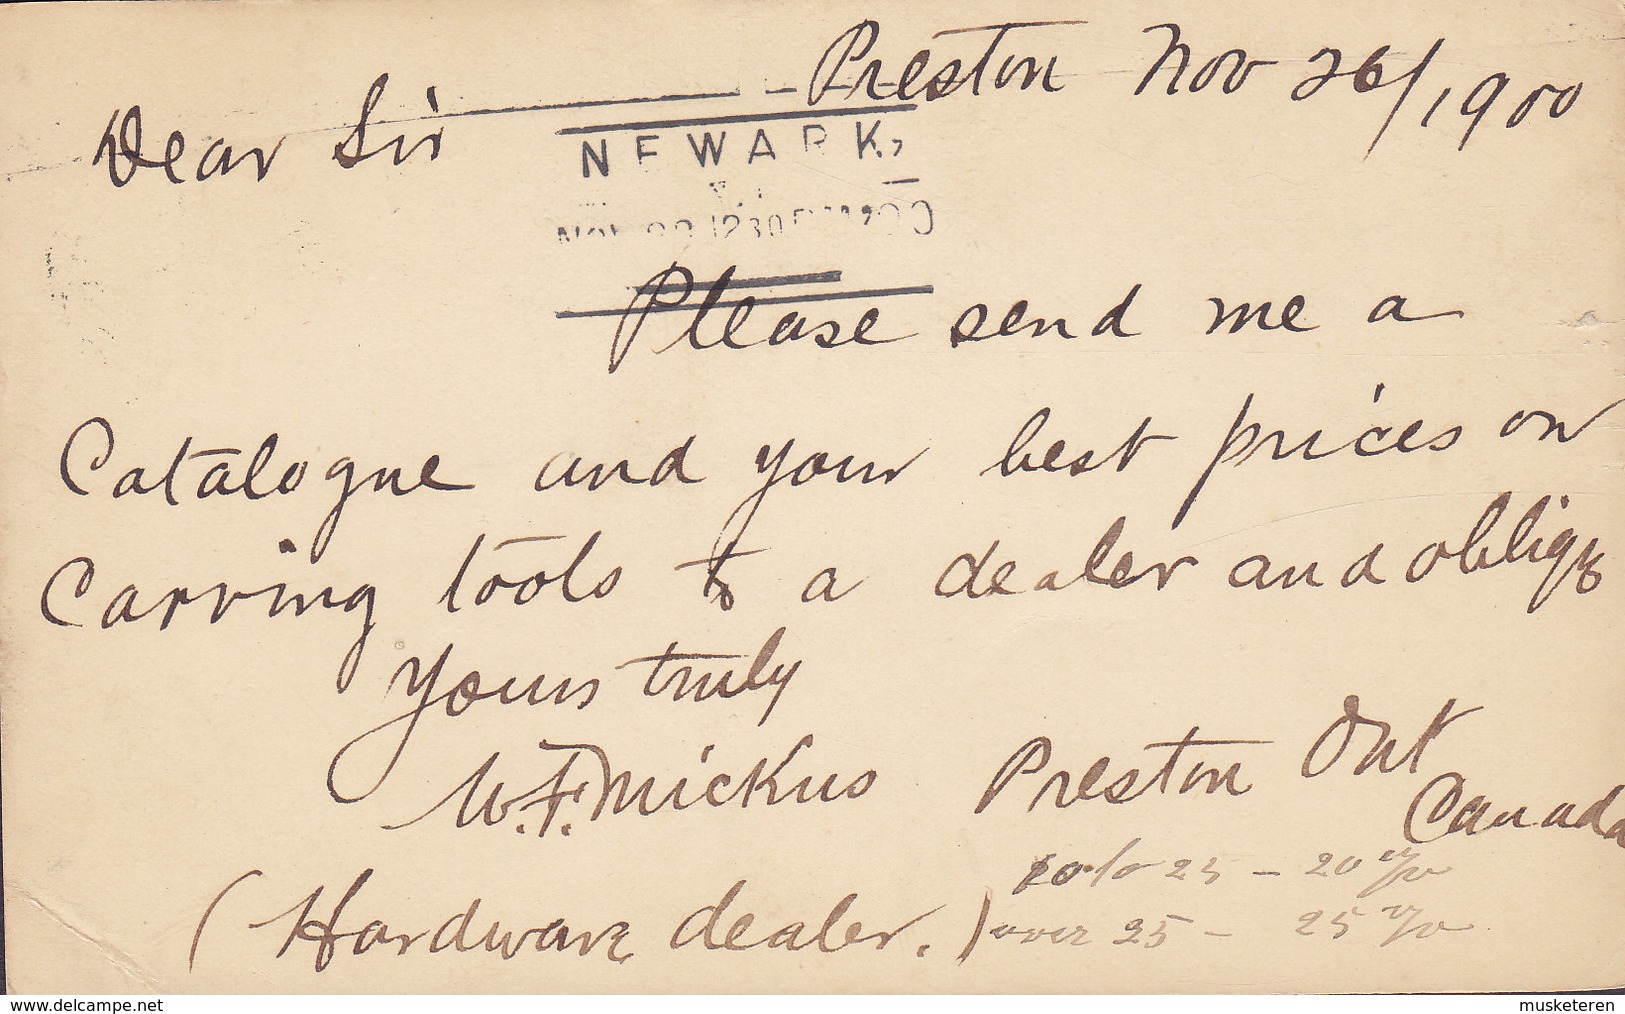 Preston Nov 26/1900
Dear Sir
NEWARK,
NOV 1230 PM
Please send me a
Catalogue and your best prices on
Carving tools to a dealer and oblige
Yours truly
W.F. Mickus Preston Ont
Canada
to 25 - 20 %
(Hardware dealer.) over 25 - 25 %
www.delcampe.net
musketeren